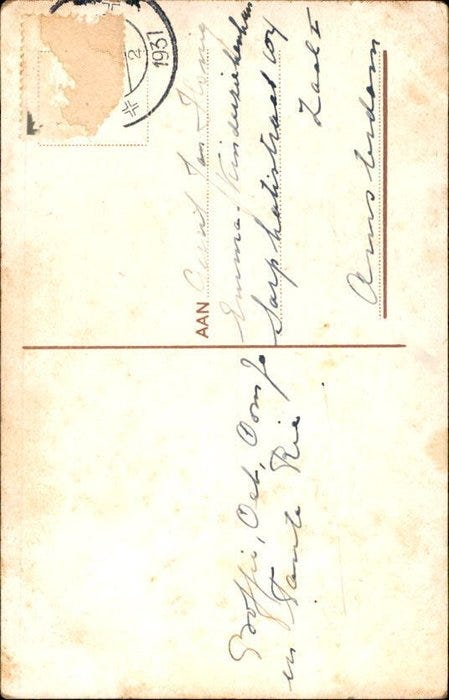 2
1931
AAN Gerrit Jan
Emma Kinderziekenhuis
Sarphatistraat 104
Zaal I
Amsterdam
en Tante Rie